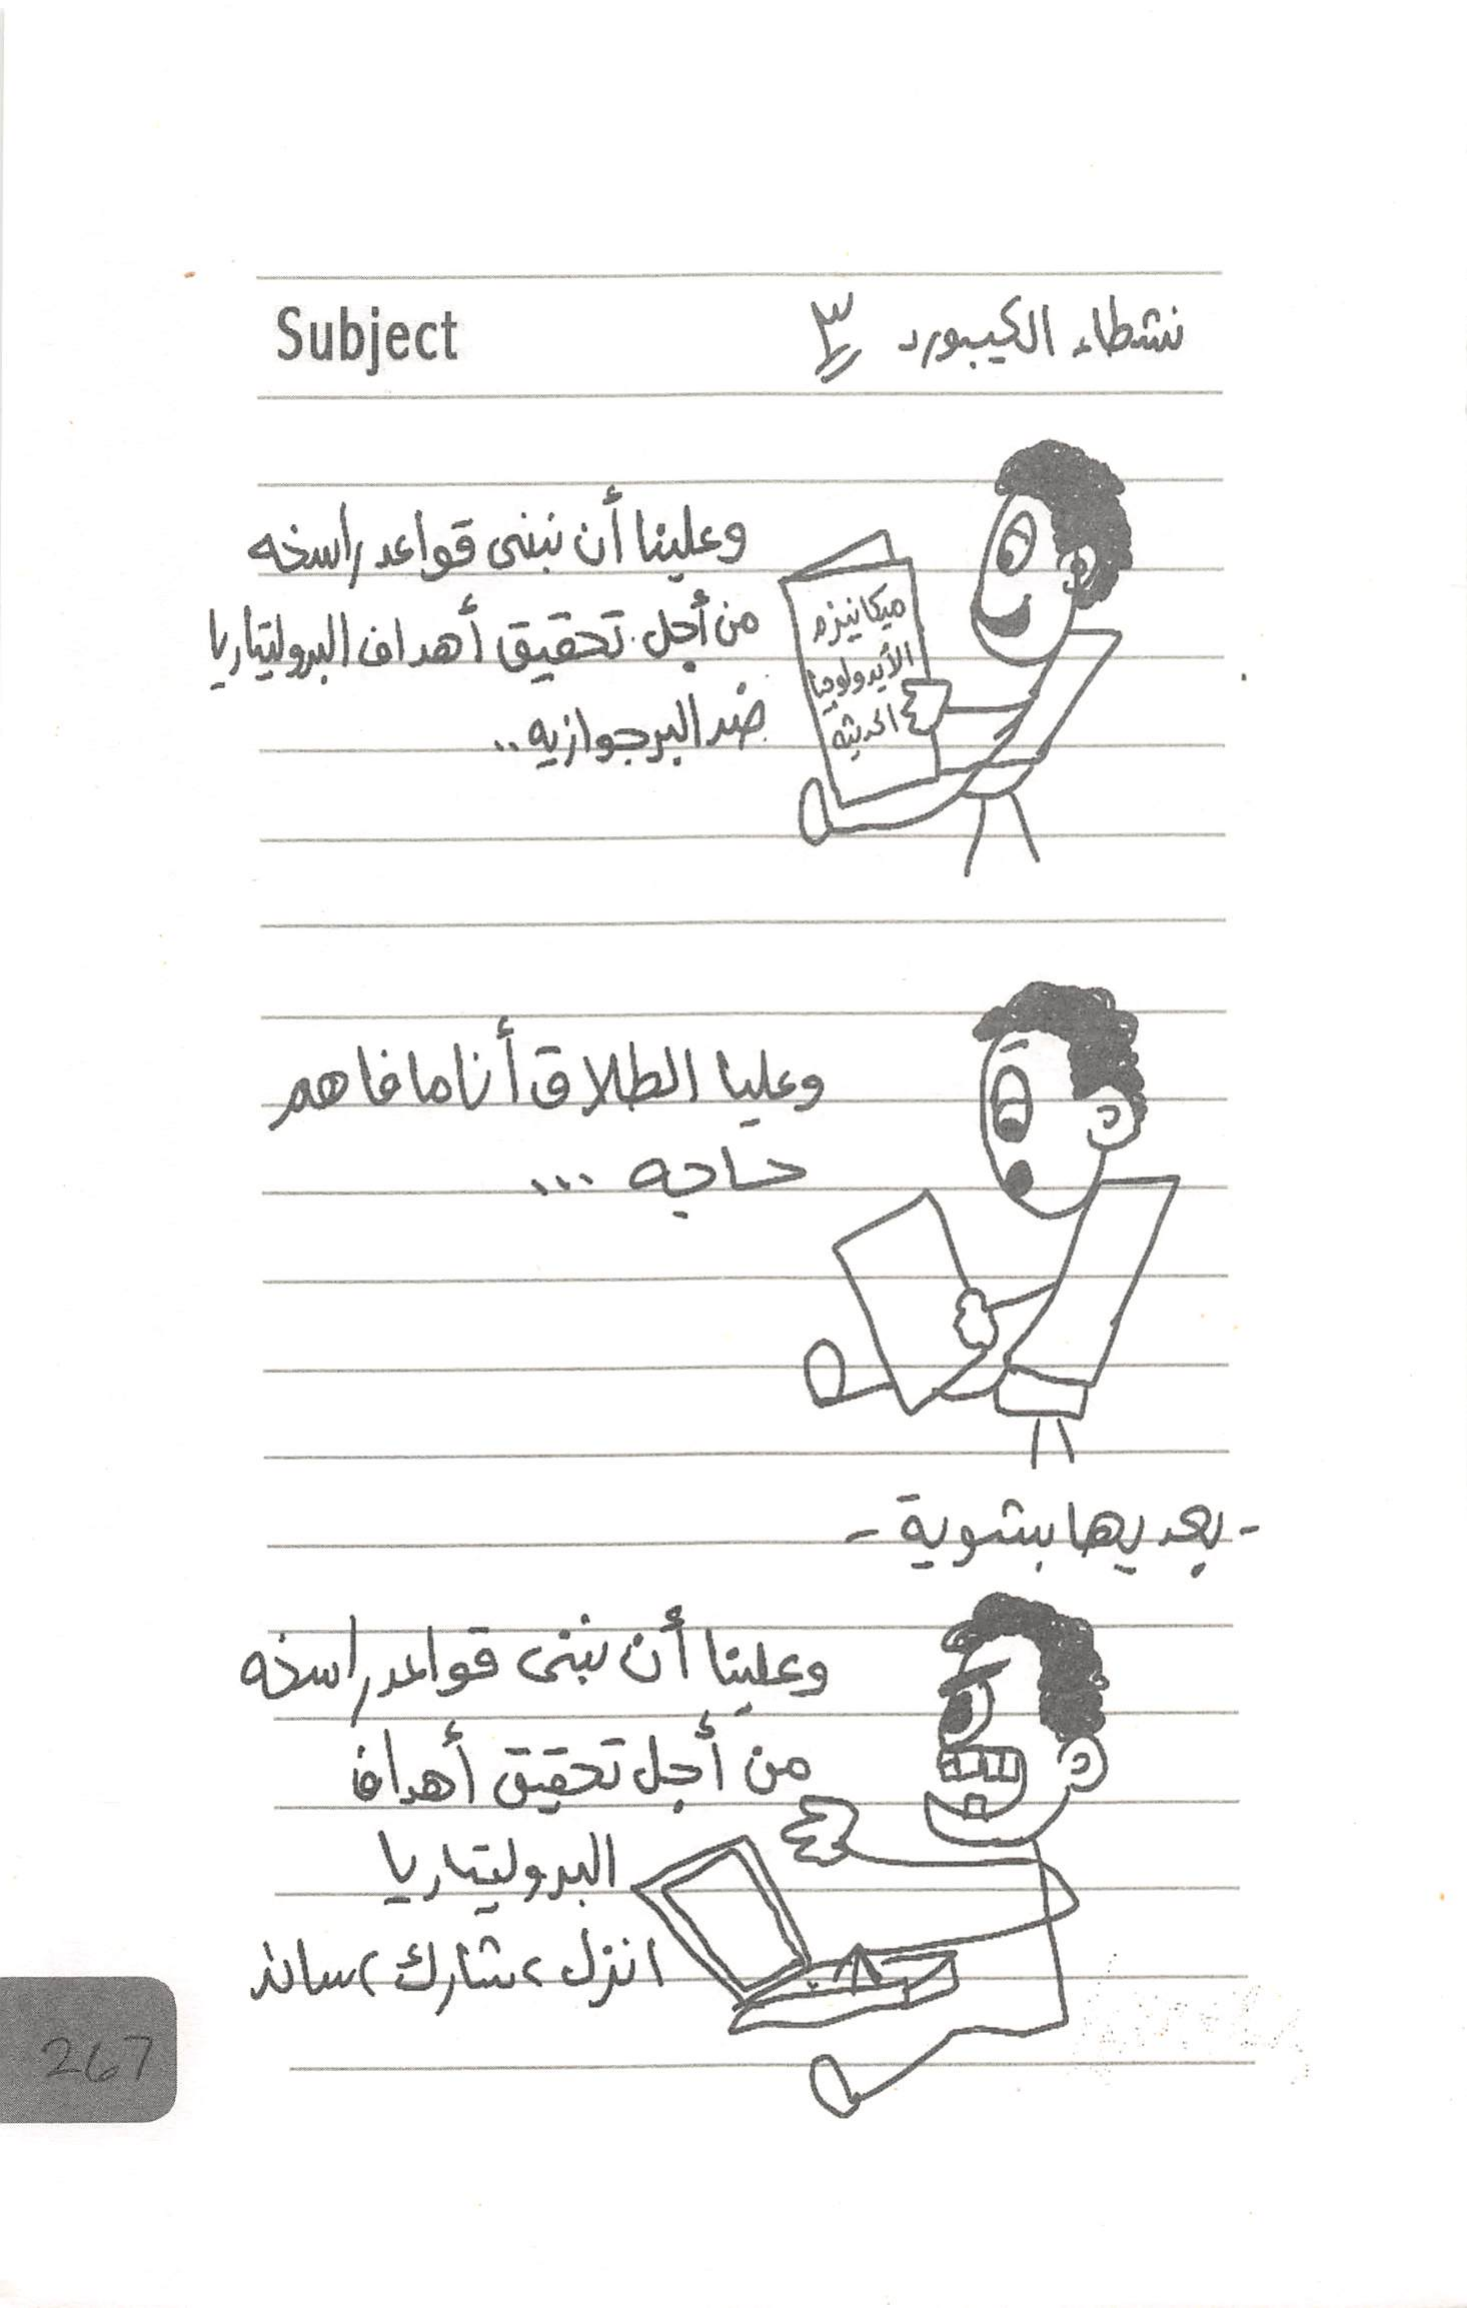 Subject
نشطاء الكيبورد ٣
وعلينا أن نبنى قواعد راسخه
من أجل تحقيق أهداف البروليتاريا
ضد البرجوازيه ..
ميكانيزم
الأيدولوجيا
الحديثه
وعليا الطلاق أنا ما فاهم
حاجه ...
- بعديها بشوية -
وعلينا أن نبنى قواعد راسخه
من أجل تحقيق أهداف
البروليتاريا
انزل، شارك، ساند
267